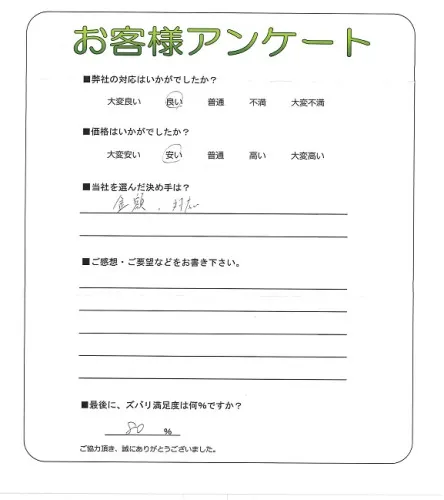 お客様アンケート
■弊社の対応はいかがでしたか？
大変良い 良い 普通 不満 大変不満
■価格はいかがでしたか？
大変安い 安い 普通 高い 大変高い
■当社を選んだ決め手は？
金額、対応
■ご感想・ご要望などをお書き下さい。
■最後に、ズバリ満足度は何%ですか？
80 %
ご協力頂き、誠にありがとうございました。